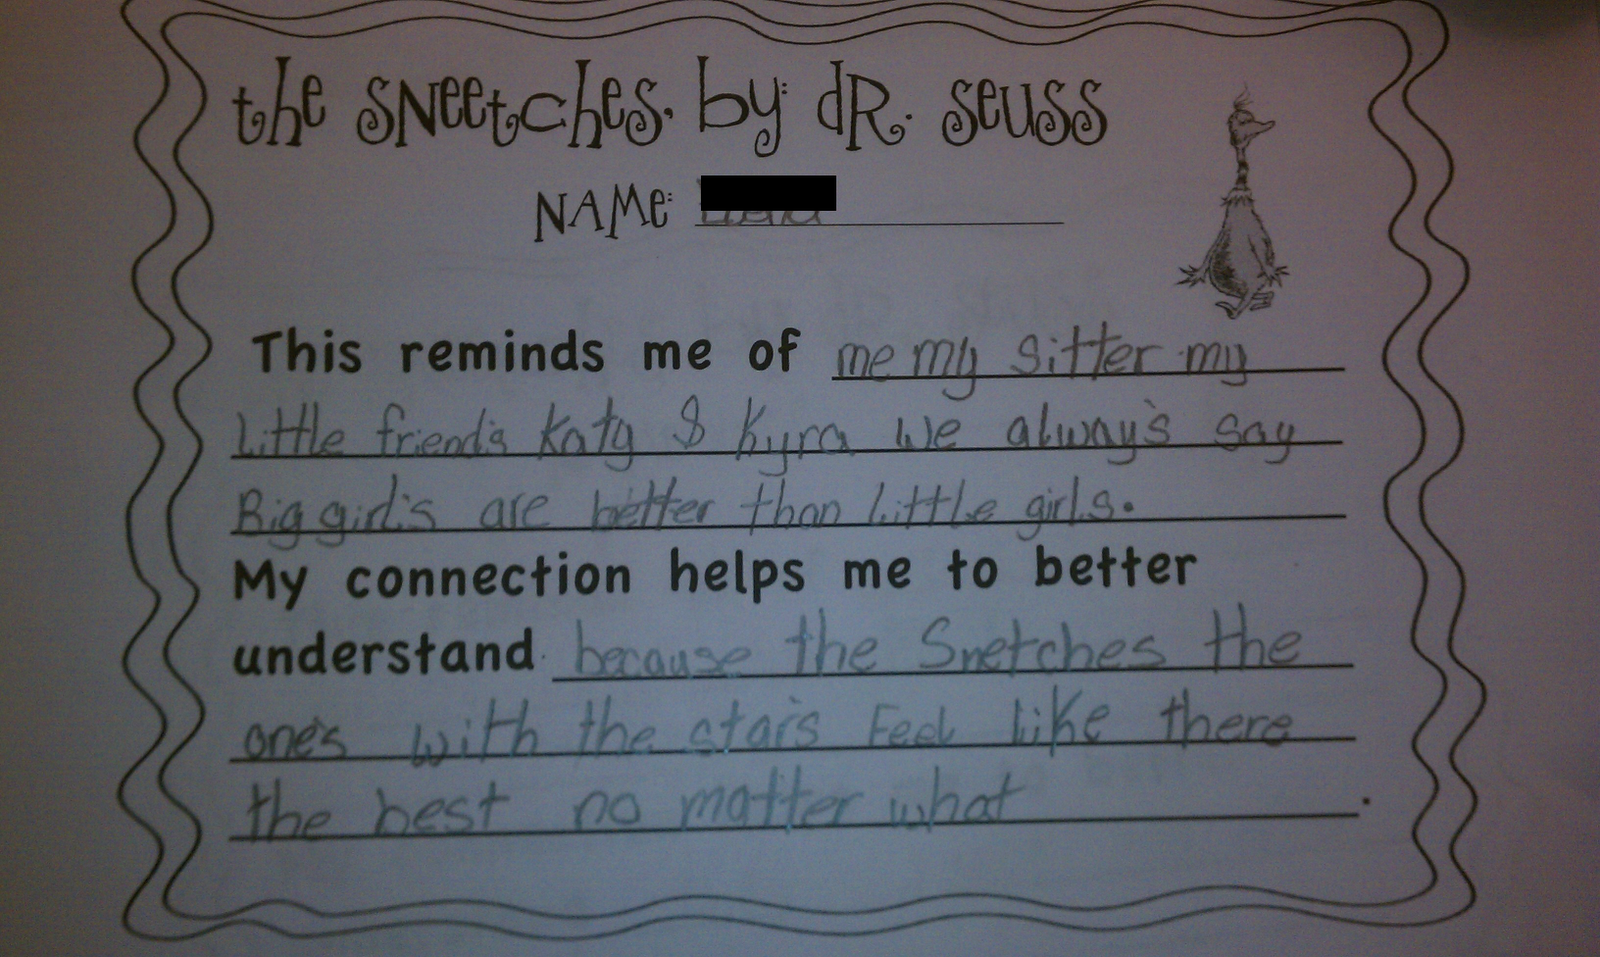 the SNeetches, by: dR. seuss
NAMe:
This reminds me of me my sitter my
Little friend's Katy & Kyra we always's say
Big girl's are better than little girls.
My connection helps me to better
understand because the Snetches the
one's with the star's Feel like there
the best no matter what.